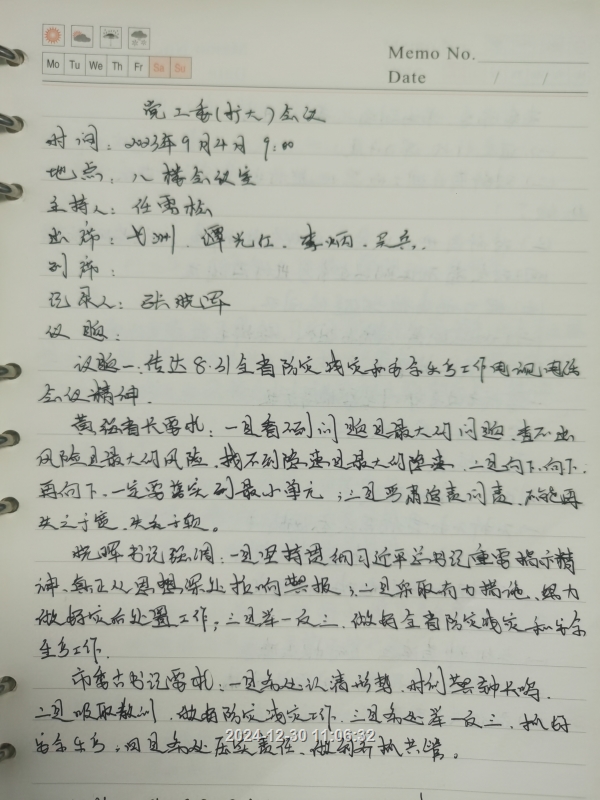 Mo Tu We Th Fr Sa Su
Memo No.
Date / /
党工委(扩大)会议
时间:2023年9月4日 9:00
地点:八楼会议室
主持人:任
出席:谭光仁、李炳、吴兵.
列席:
记录人:张晓晖
议题:
议题一:传达8.31全省防灾减灾和安全生产工作电视电话
会议精神.
黄强省长要求:一是看不到问题是最大的问题,查不出
风险是最大的风险,找不到隐患是最大的隐患.二是向下、向下、
再向下,一定要落实到最小单元;三是严肃追责问责,不能再
失之于宽、失之于软。
晓晖书记强调:一是坚持贯彻习近平总书记重要指示精
神,真正从思想深处拉响警报;二是采取有力措施,努力
做好灾后处置工作;三是举一反三,做好全省防灾减灾和安全
生产工作.
市委古书记要求:一是务必认清形势,时刻警钟长鸣.
二是吸取教训,做好防灾减灾工作.三是务必举一反三,抓好
安全生产,四是务必压实责任,做到齐抓共管。
2024-12-30 11:06:32